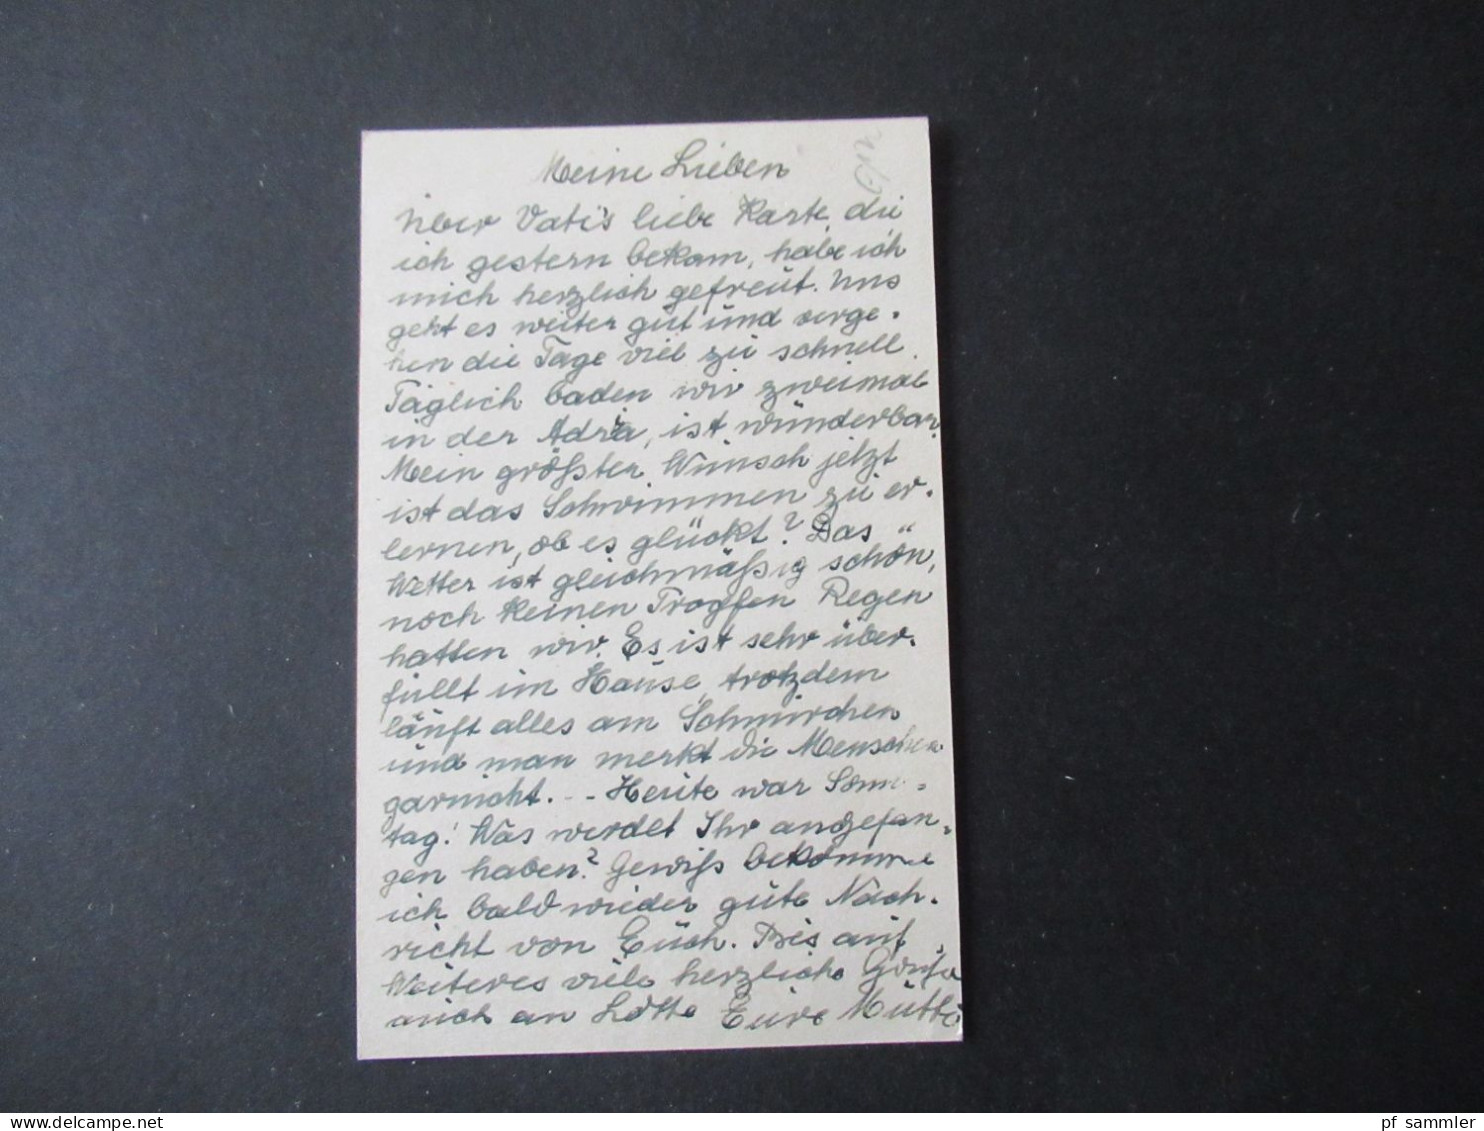 Meine Lieben
Über Vati's liebe Karte, die
ich gestern bekam, habe ich
mich herzlich gefreut. Uns
geht es weiter gut und verge-
hen die Tage viel zu schnell.
Täglich baden wir zweimal
in der Adria, ist wunderbar.
Mein größter Wunsch jetzt
ist das Schwimmen zu er-
lernen, ob es glückt? Das
Wetter ist gleichmäßig schön,
noch keinen Tropfen Regen
hatten wir. Es ist sehr über-
füllt im Hause, trotzdem
läuft alles am Schnürchen
und man merkt die Menschen
garnicht. -- Heute war Sonn-
tag! Was werdet Ihr angefan-
gen haben? Gewiß bekomme
ich bald wieder gute Nach-
richt von Euch. Bis auf
Weiteres viele herzliche Grüße
auch an Lotte Eure Mutti
www.delcampe.net
pf_sammler